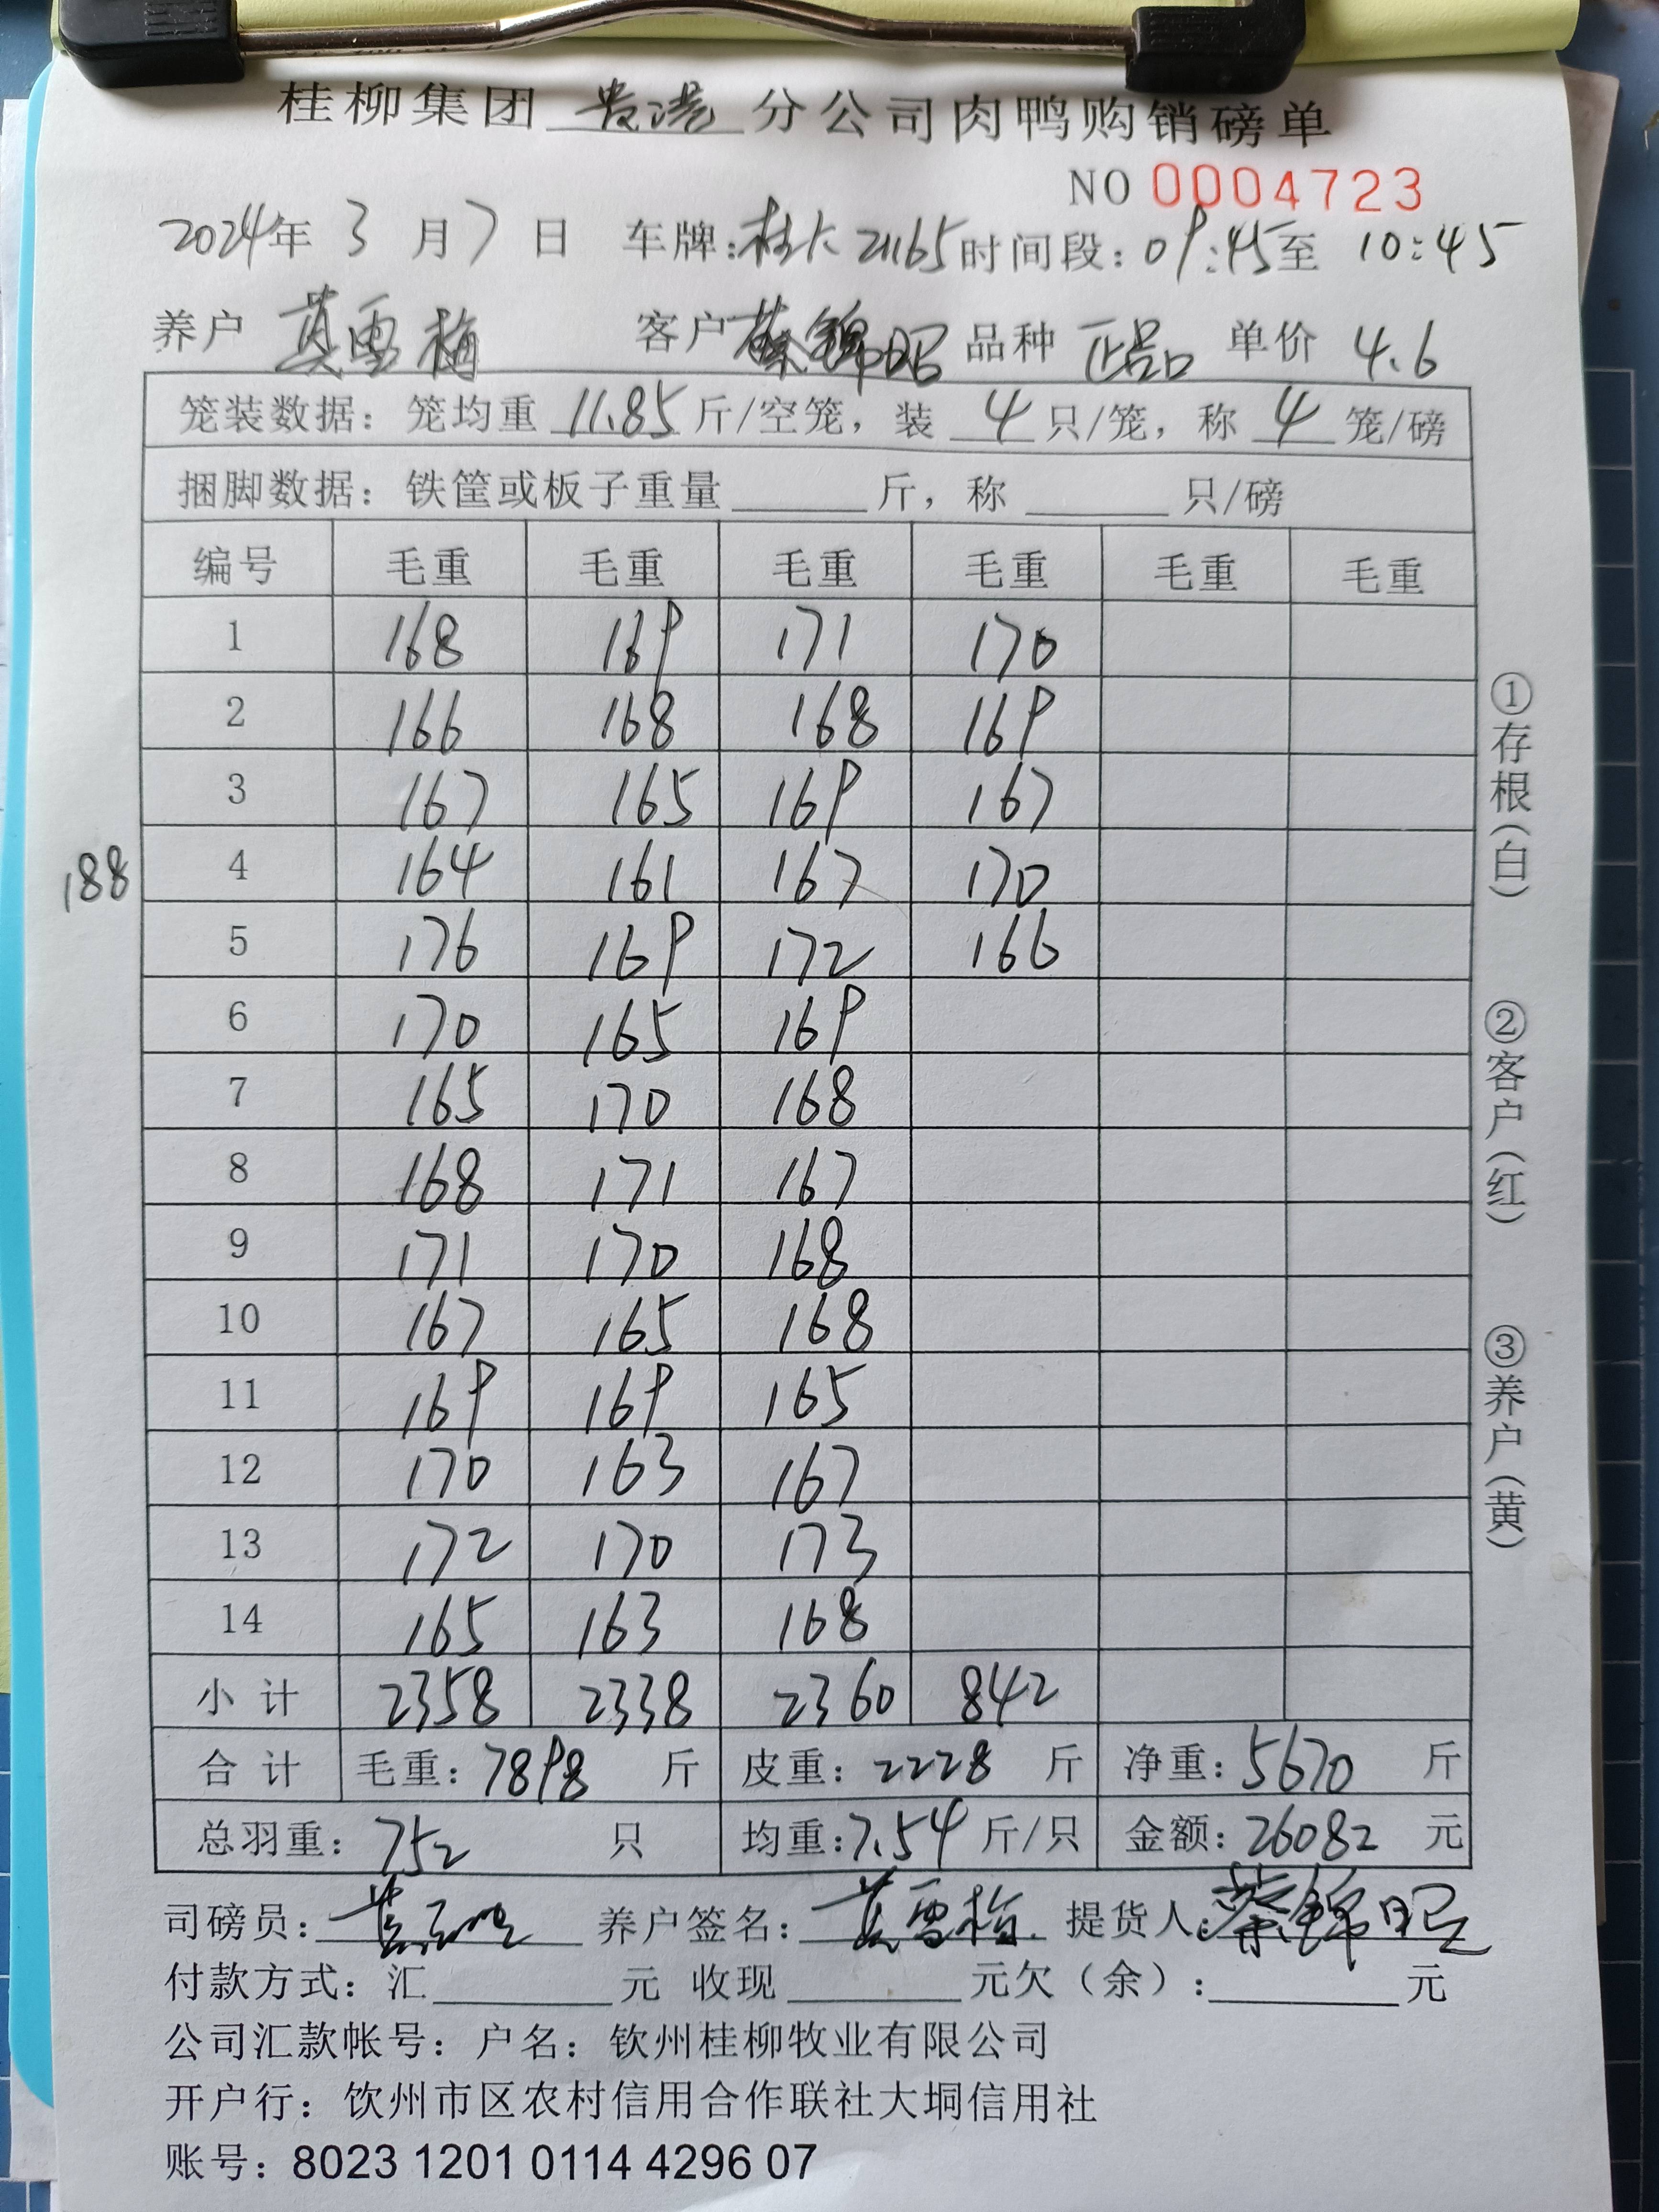 桂柳集团 贵港 分公司肉鸭购销磅单
NO 0004723
2024年 3 月 7 日 车牌: 21165 时间段: 09:45至 10:45
养户 莫雪梅 客户 蔡锦昭 品种 正品 单价 4.6
笼装数据: 笼均重 11.85 斤/空笼, 装 4 只/笼, 称 4 笼/磅
捆脚数据: 铁筐或板子重量 斤, 称 只/磅
编号 毛重 毛重 毛重 毛重 毛重 毛重
1 168 169 171 170
2 166 168 168 169
3 167 165 169 167
188
4 164 161 167 170
5 176 169 172 166
6 170 165 169
7 165 170 168
8 168 171 167
9 171 170 168
10 167 165 168
11 169 169 165
12 170 163 167
13 172 170 173
14 165 163 168
小计 2358 2338 2360 842
合计 毛重: 7898 斤 皮重: 2228 斤 净重: 5670 斤
总羽重: 752 只 均重: 7.54 斤/只 金额: 26082 元
司磅员: 养户签名: 莫雪梅 提货人: 蔡锦昭
付款方式: 汇 元 收现 元欠(余): 元
公司汇款帐号: 户名: 钦州桂柳牧业有限公司
开户行: 钦州市区农村信用合作联社大垌信用社
账号: 8023 1201 0114 4296 07
①存根(白)
②客户(红)
③养户(黄)